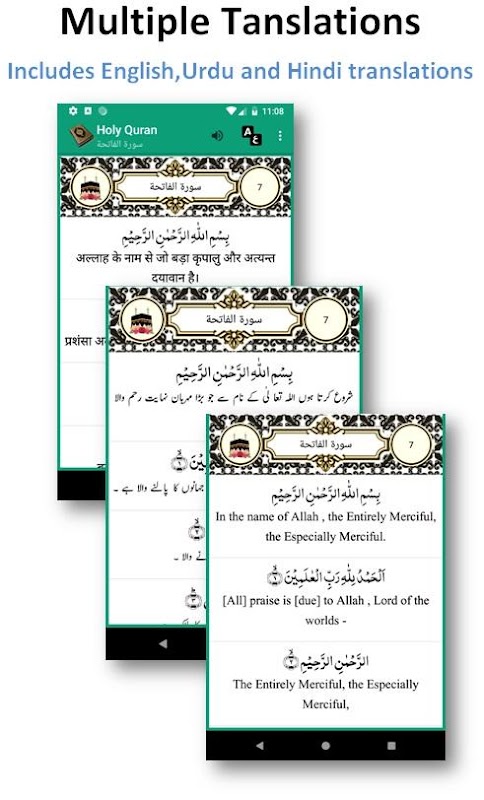 Multiple Tanslations
Includes English,Urdu and Hindi translations
11:08
Holy Quran
سورة الفاتحة
A
ع
سورة الفاتحة
7
بِسْمِ اللّٰهِ الرَّحْمٰنِ الرَّحِيْمِ
अल्लाह के नाम से जो बड़ा कृपालु और अत्यन्त
दयावान है।
प्रशंसा
سورة الفاتحة
7
بِسْمِ اللّٰهِ الرَّحْمٰنِ الرَّحِيْمِ
شروع کرتا ہوں اللہ تعا لٰی کے نام سے جو بڑا مہربان نہایت رحم والا
جہانوں کا پالنے والا ہے ۔
والا ۔
سورة الفاتحة
7
بِسْمِ اللّٰهِ الرَّحْمٰنِ الرَّحِيْمِ
In the name of Allah , the Entirely Merciful,
the Especially Merciful.
اَلْحَمْدُ لِلّٰهِ رَبِّ الْعٰلَمِيْنَ ۙ﴿۱﴾
[All] praise is [due] to Allah , Lord of the
worlds -
الرَّحْمٰنِ الرَّحِيْمِ ۙ﴿۲﴾
The Entirely Merciful, the Especially
Merciful,